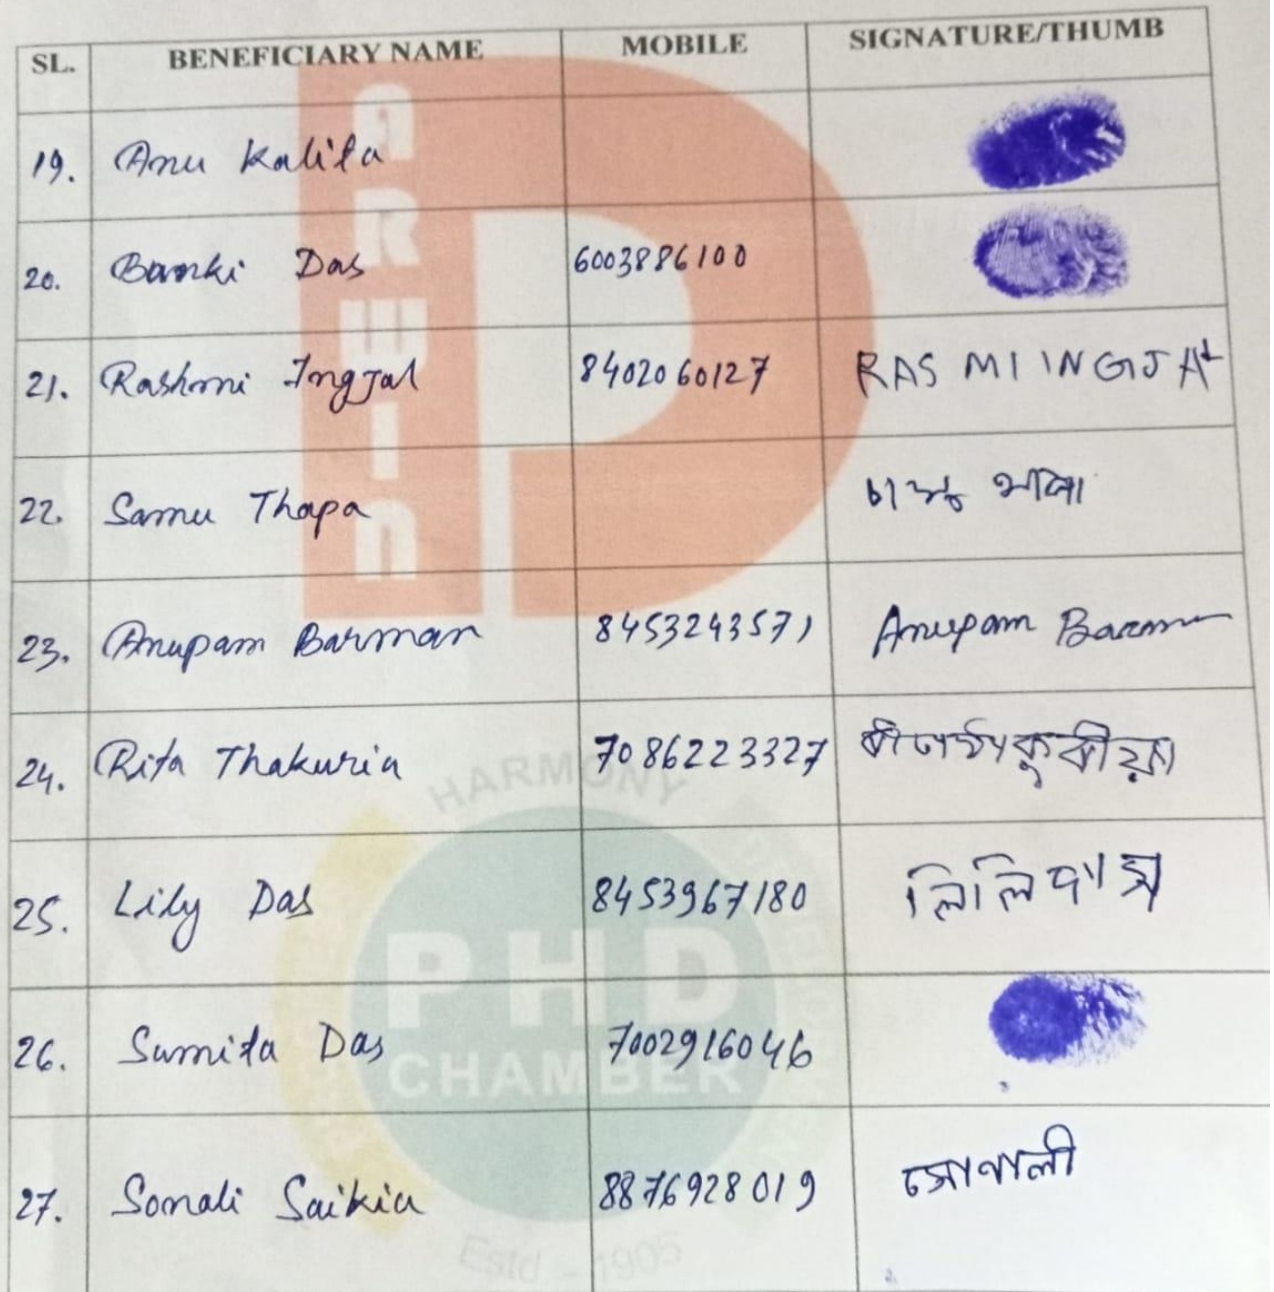 SL. BENEFICIARY NAME MOBILE SIGNATURE/THUMB
19. Anu Kalita
20. Banki Das 6003886100
21. Rashmi Ingjal 8402060127 RASMI INGJAL
22. Samu Thapa
23. Anupam Barman 8453243571 Anupam Barman
24. Rita Thakuria 7086223327
25. Lily Das 8453967180 লিলি দাস
26. Sumita Das 7002916046
27. Sonali Saikia 8876928019 সোণালী
DARWIN
HARMONY
PHD
CHAMBER
Estd. - 1905